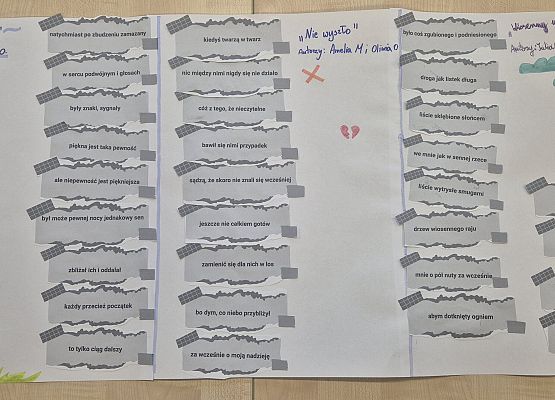 natychmiast po zbudzeniu zamazany
w sercu podwójnym i głosach
były znaki, sygnały
piękna jest taka pewność
ale niepewność jest piękniejsza
był może pewnej nocy jednakowy sen
zbliżał ich i oddalał
każdy przecież początek
to tylko ciąg dalszy
kiedyś twarzą w twarz
nic między nimi nigdy się nie działo
cóż z tego, że nieczytelne
bawił się nimi przypadek
sądzą, że skoro nie znali się wcześniej
jeszcze nie całkiem gotów
zamienić się dla nich w los
bo dym, co niebo przybliżył
za wcześnie o moją nadzieję
„Nie wyszło"
Autorzy: Amelia M i Oliwia O
było coś zgubionego i podniesionego
droga jak listek długa
liście skłębione słońcem
we mnie jak w sennej rzece
liście wytrysłe smugami
drzew wiosennego raju
mnie o pół nuty za wcześnie
abym dotknięty ogniem
Autorzy: